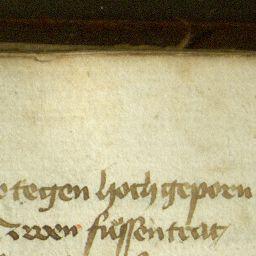 tegen hochgeporn
zwen fussentrat